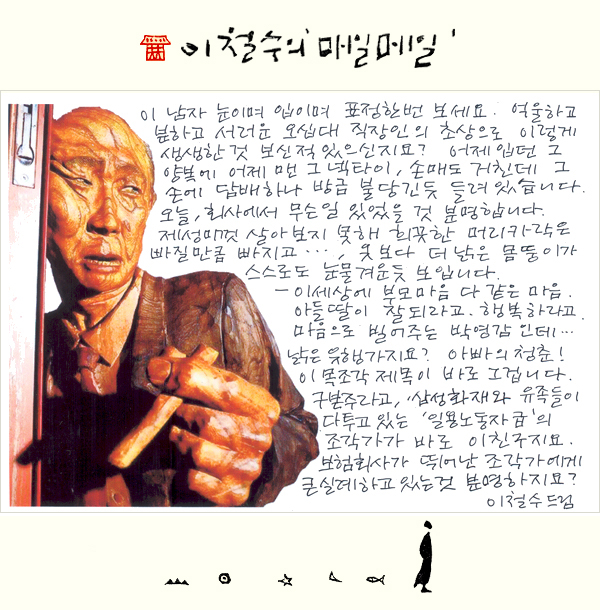 이철수의 '매일메일'
이 남자 눈이며 입이며 표정한번 보세요. 억울하고
분하고 서러운 오십대 직장인의 초상으로 이렇게
생생한것 보신적 있으신지요? 어제입던 그
양복에 어제 맨 그 넥타이, 손매도 거친데 그
손에 담배하나 방금 불 당긴듯 들려있습니다.
오늘, 회사에서 무슨일 있었을 것 분명합니다.
제성미껏 살아보지 못해 희끗한 머리카락은
빠질만큼 빠지고…, 옷보다 더 낡은 몸뚱이가
스스로도 눈물겨운듯 보입니다.
— 이세상에 부모마음 다 같은 마음.
아들딸이 잘되라고. 행복하라고.
마음으로 빌어주는 박영감 인데…
낡은 유행가지요? 아빠의 청춘!
이 목조각 제목이 바로 그겁니다.
구본주라고, '삼성화재와 유족들이
다투고 있는 '일용노동자급'의
조각가가 바로 이친구지요.
보험회사가 뛰어난 조각가에게
큰실례하고 있는것 분명하지요?
이철수 드림